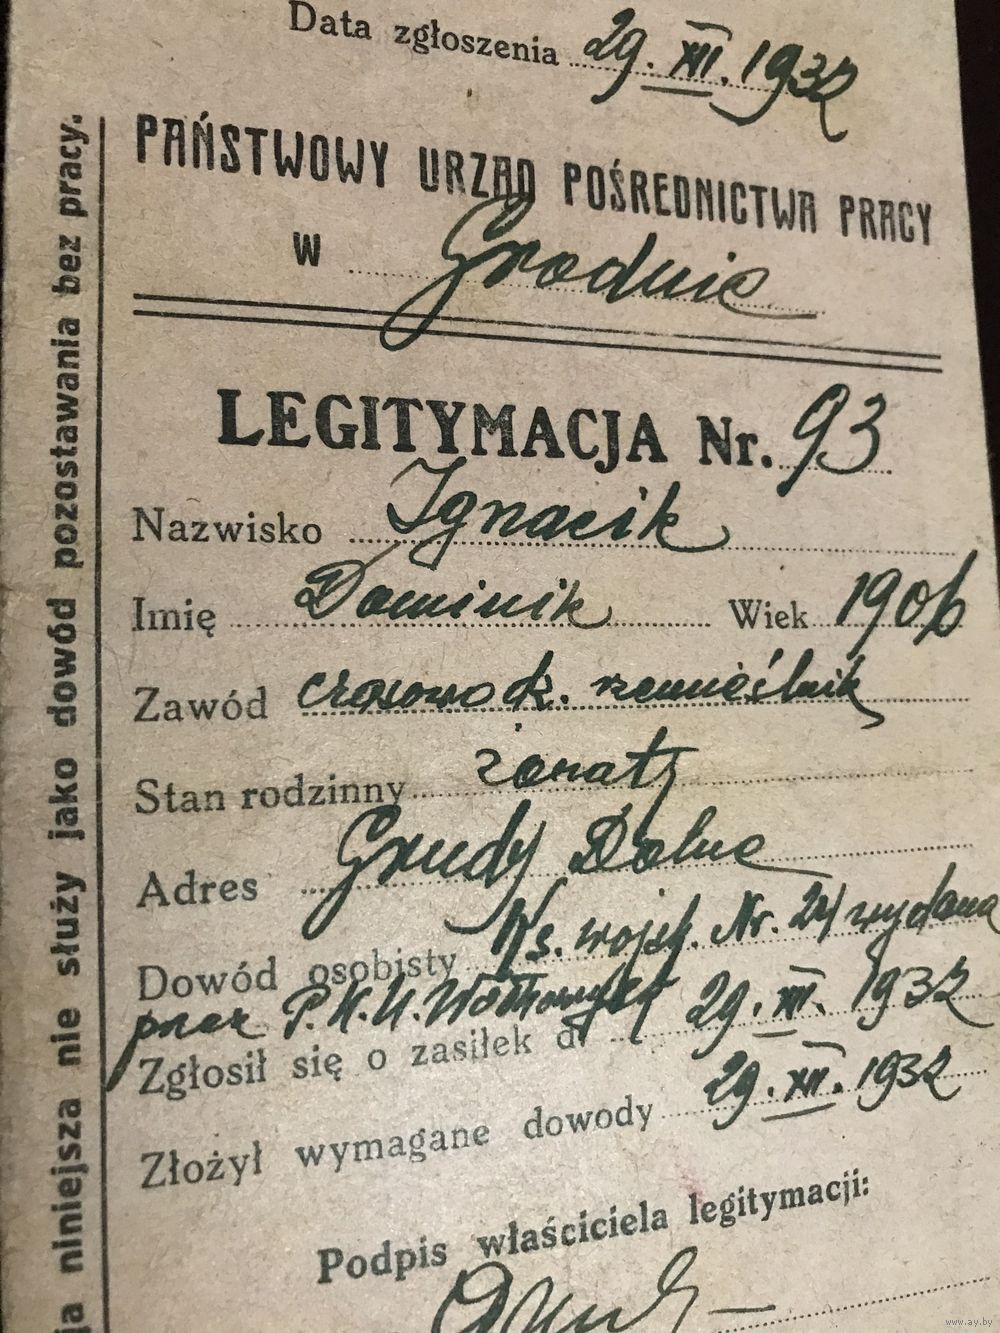 Data zgłoszenia 29. XII. 1932
PAŃSTWOWY URZĄD POŚREDNICTWA PRACY
W Grodnie
LEGITYMACJA Nr. 93
Nazwisko Ignacik
Imię Dominik Wiek 1906
Zawód czasowo d. rzemieślnik
Stan rodzinny żonaty
Adres Grudy Dolne
Dowód osobisty Ks. wojsk. Nr. 24 wydana
przez P.K.U. Wołkowysk
Zgłosił się o zasiłek d. 29. XII. 1932
Złożył wymagane dowody 29. XII. 1932
Podpis właściciela legitymacji:
ja niniejsza nie służy jako dowód pozostawania bez pracy.
www.ay.by